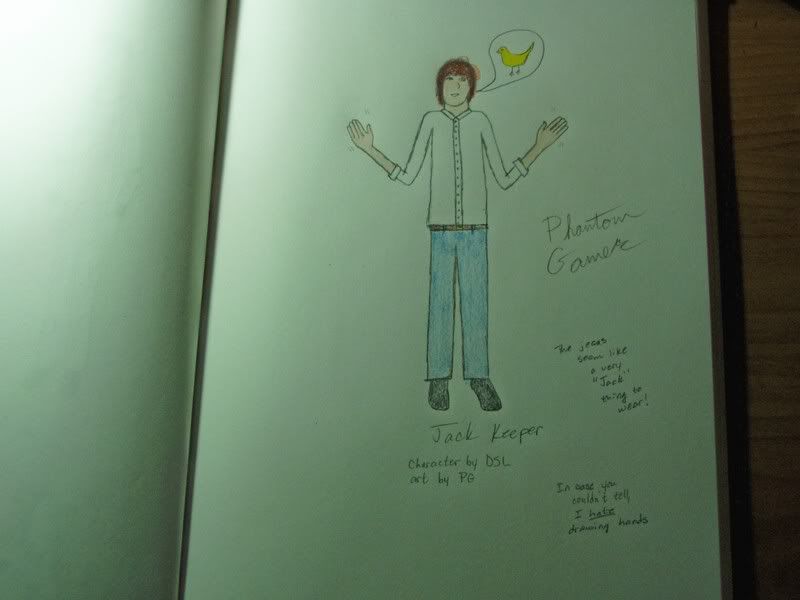 Phantom
Gamer
The jeans
seem like
a very
"Jack"
thing to
wear!
Jack Keeper
Character by DSL
art by PG
In case you
couldn't tell,
I hate
drawing hands